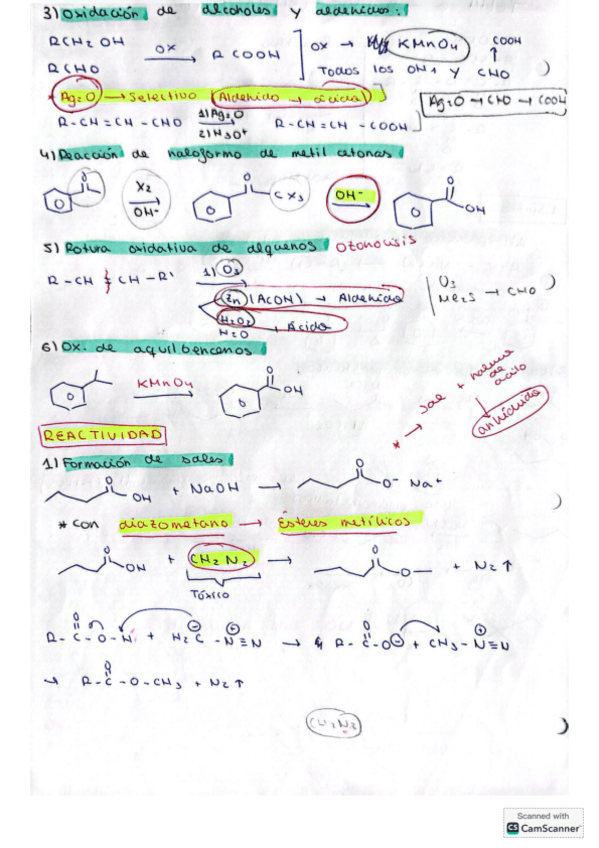 3) Oxidación de alcoholes y aldehidos:
RCH2 OH ox → R COOH ox → KMnO4 COOH
RCHO Todos los OH y CHO
* Ag2O → Selectivo (Aldehido → ácido)
Ag2O → CHO → COOH
R-CH=CH-CHO 1) Ag2O 2) H3O+ R-CH=CH-COOH
4) Reacción de haloformo de metil cetonas
X2 OH- O CX3 OH- O OH
5) Rotura oxidativa de alquenos Ozonolisis
R-CH CH-R' 1) O3
Zn (AcOH) → Aldehido
H2O2 H2O → Ácido
O3 Me2S → CHO
6) Ox. de aquilbencenos
KMnO4 O OH
* → Sal + haluro de ácido
anhídrido
REACTIVIDAD
1) Formación de sales
O OH + NaOH → O O- Na+
* con diazometano → Ésteres metílicos
O OH + CH2N2 → O O + N2↑
Tóxico
R-C-O-H + H2C-N≡N → R-C-O + CH3-N≡N
→ R-C-O-CH3 + N2↑
CH2N2
Scanned with
CS CamScanner